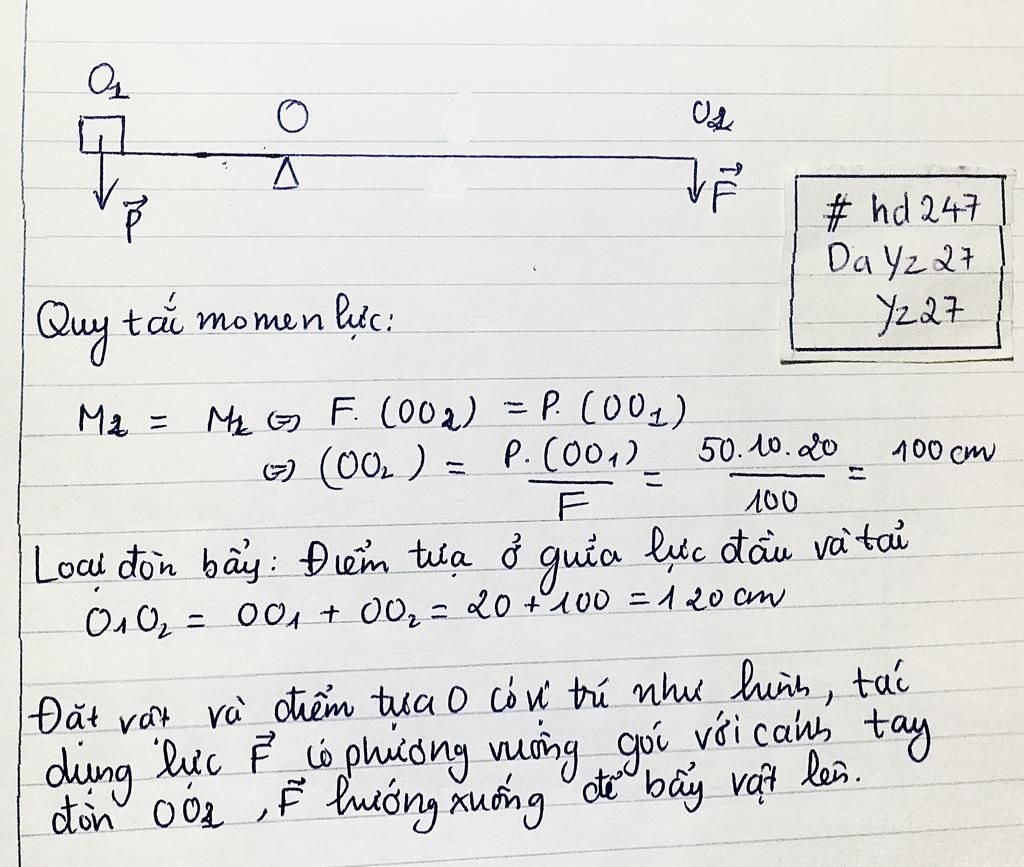 O1
O
O2
P
F
# hd 247
Da Yz 27
Yz27
Quy tắc momen lực:
M2 = M1 ⇔ F. (OO2) = P. (OO1)
⇔ (OO2) = P. (OO1) / F = 50.10.20 / 100 = 100 cm
Loại đòn bẩy: Điểm tựa ở giữa lực đẩu và tải
O1O2 = OO1 + OO2 = 20 + 100 = 120 cm
Đặt vật và điểm tựa O có vị trí như hình, tác
dụng lực F có phương vuông góc với cánh tay
đòn OO2, F hướng xuống để bẩy vật lên.